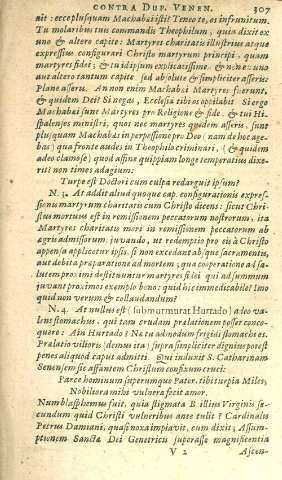 CONTRA DUP. VENEN. 307
ait: ecce plusquam Machabai istic Temeo te, es infrunitum.
Tu molaribus tuis commandis Theophilum, quia dixit ex
uno & altero capite: Martyres charitatu illustrius atque
expressius configurari Christo martyrum principi, quam
martyres fidei; & tu id ipsum explicatissime, & non è uno
aut altero tantum capite sed absolute & simpliciter asseris:
Plane asseru. An non enim Machabai Martyres fuerunt,
& quidem Dei? Si negas, Ecclesia tibi os oppilabit. Si ergo
Machabai sunt Martyres pro Religione & fide, & tui Hi-
spalenses ministri, quos nec martyres quidem asseris, sunt
plusquam Machabai in perpessione pro Deo: nam de hoc age-
bas) qua fronte audes in Theophilo criminari, (& quidem
adeo clamosè) quod absine quippiam longe temperatius dixe-
rit? non times adagium:
Turpe est Doctori cum culpa redarguit ipsum?
N. 3. At addit aliud quoque cap. configurationis expres-
sionis martyrum charitatis cum Christo dicens: sicut Chri-
stus mortuus est in remissionem peccatorum nostrorum, ita
Martyres charitatis mori in remissionem peccatorum ab
agris admissorum, juvando, ut redemptio pro eis à Christo
appensa applicetur ipsis, si non excedant absque sacramentis,
aut debita praparatione ad mortem; qua cooperatione ad sa-
lutem proximi destituuntur martyres fidei qui ad summum
juvant proximos exemplo bono: quid hic immedicabile? imo
quid non verum & collaudandum?
N. 4. At nullus est (submurmurat Hurtado) adeo va-
lens stomachus, qui tam crudam pralationem posset conco-
quere: Ain Hurtado? Na tu admodum frigidi stomachi es.
Pralatio vilioris (demus ita) supra simpliciter dignius potest
penes aliquod caput admitti. Qui induxit S. Catharinam
Senensem sic assantem Christum confixum cruci:
Parce hominum superumque Pater, tibi turpia Miles,
Nobiliora mihi vulnera fecit amor.
Num blasphemus fuit, quia stigmata B illius Virginis se-
cundum quid Christi vulneribus ante tulit? Cardinalis
Petrus Damiani, quasi noxa impiavit, cum dixit; Assum-
ptionem Sancta Dei Genetricis superasse magnificentia
V 2 Ascen-